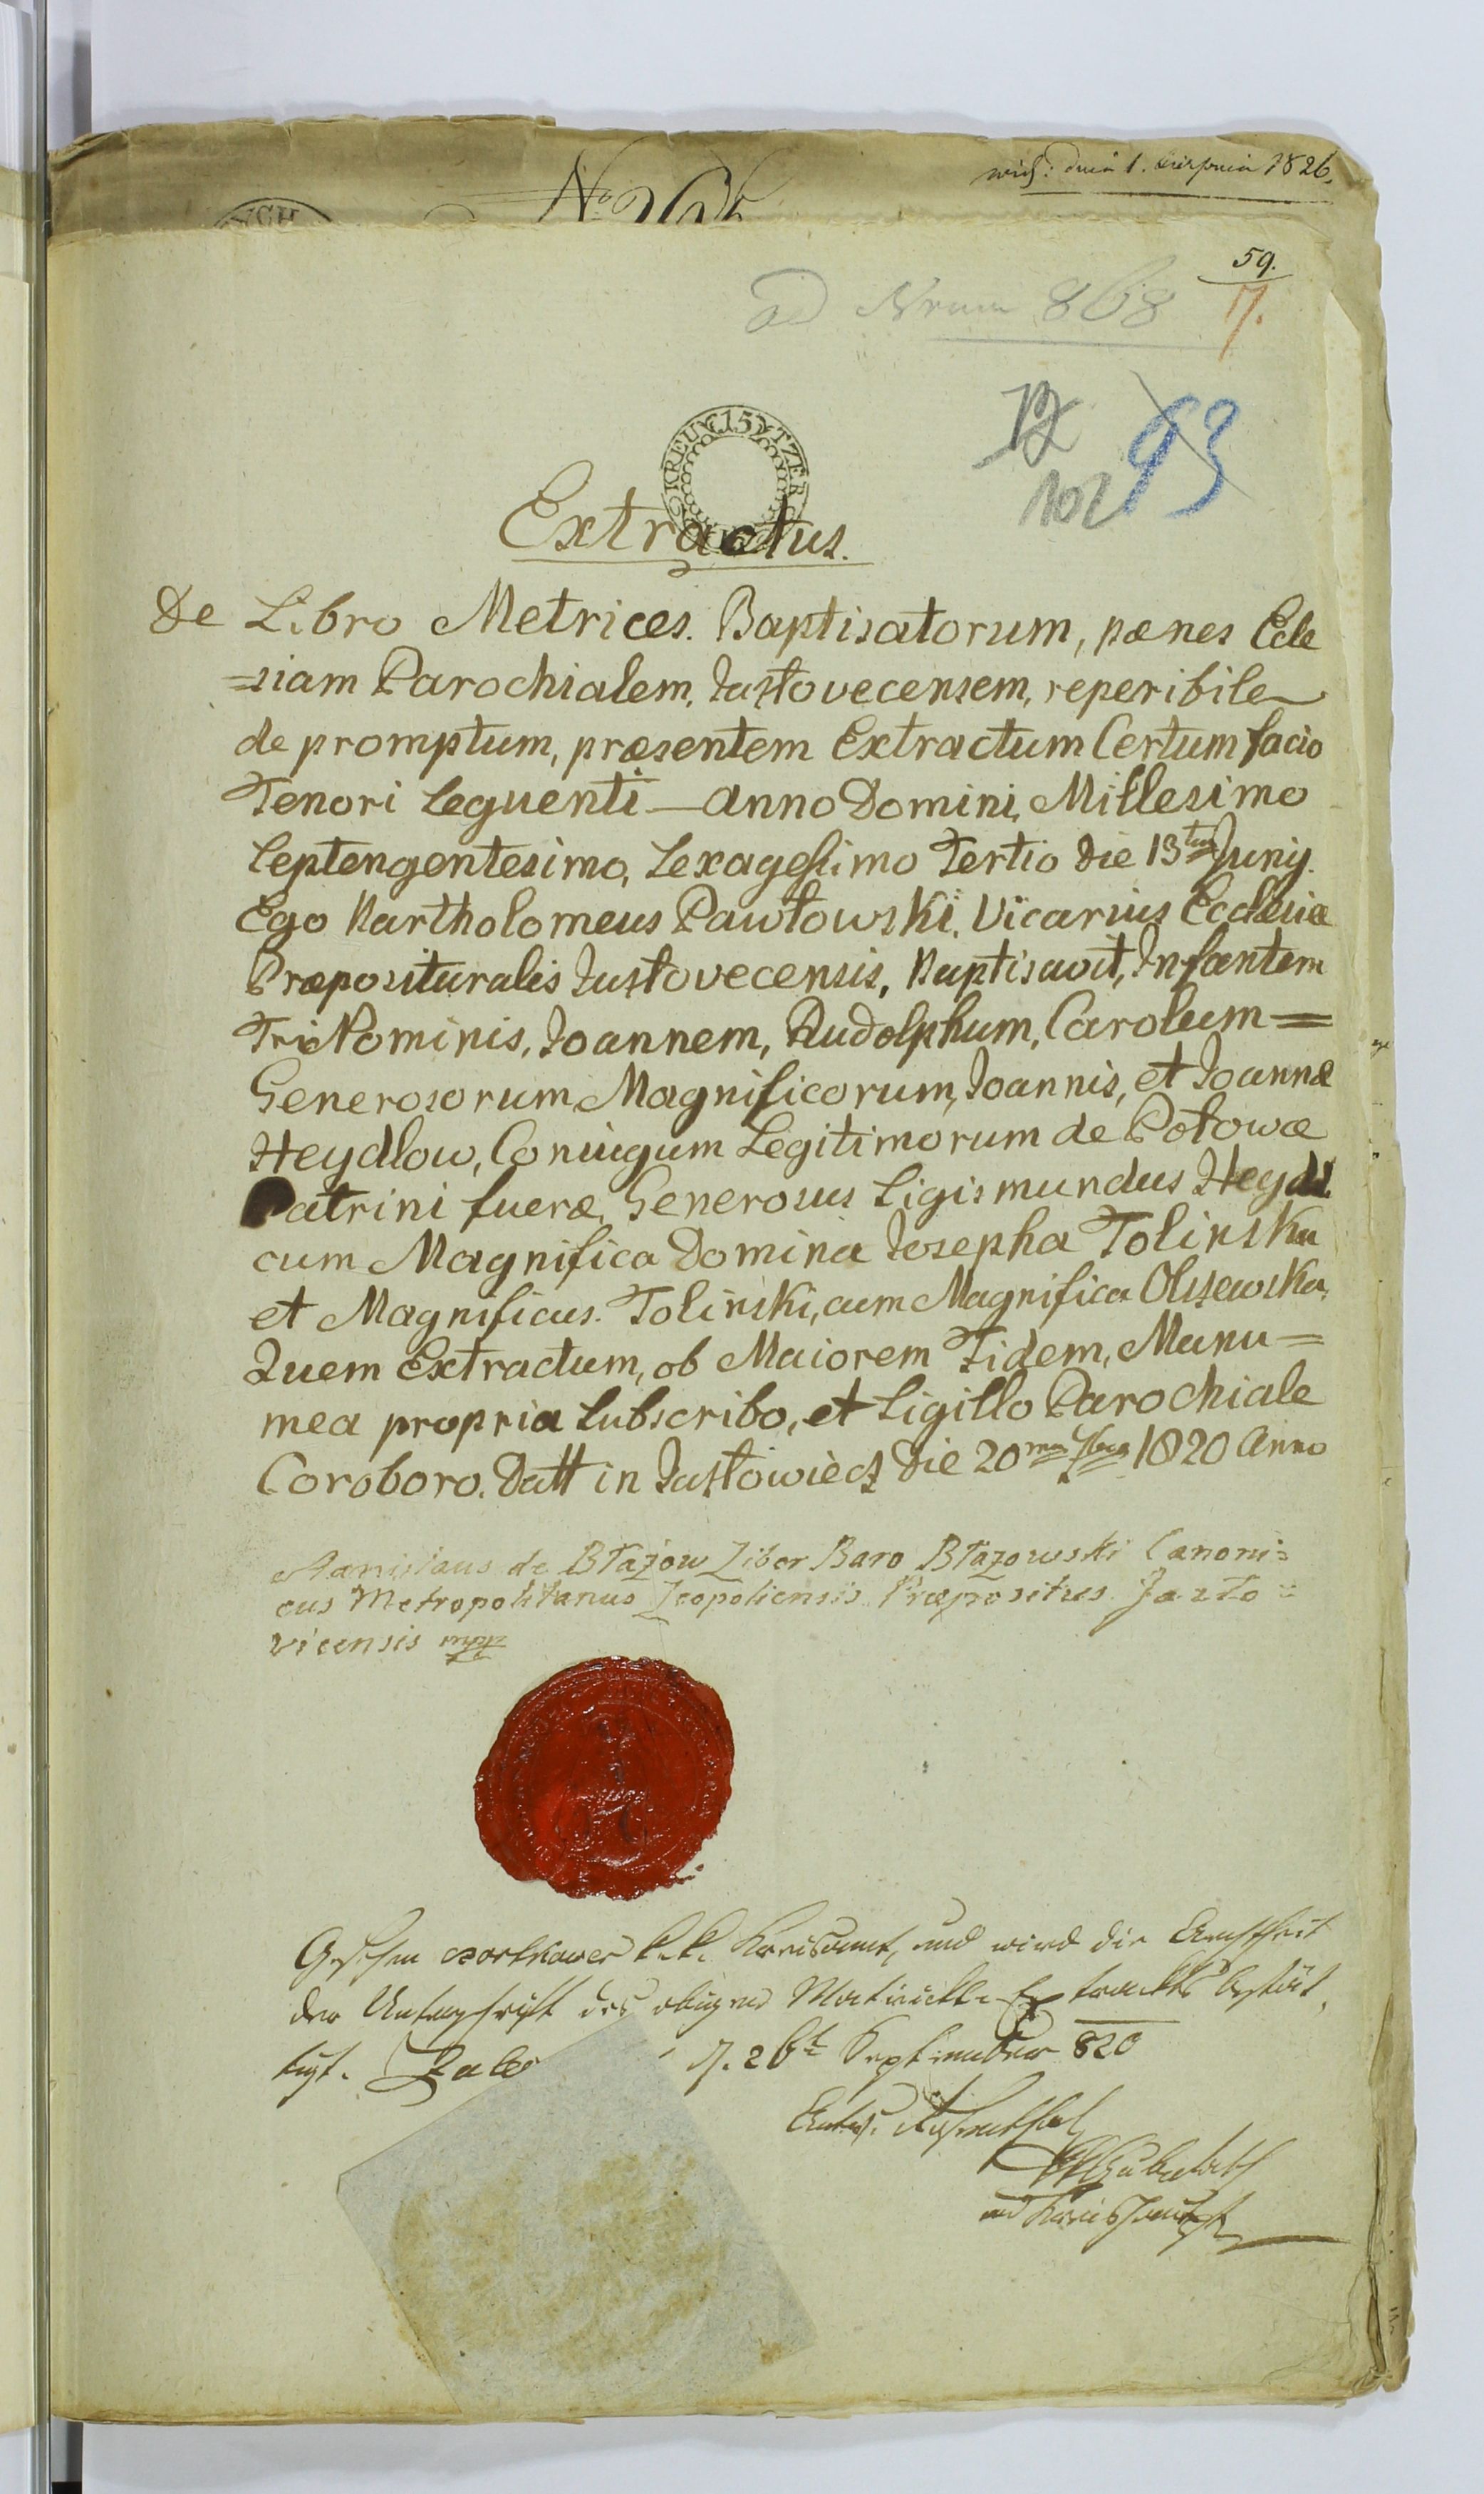 1826.
59.
ad Nrum 868 7.
12
102 93
KREUTZER 15
Extractus.
De Libro Metrices. Baptisatorum, pænes Ecle
=siam Parochialem, Jazłovecensem, reperibile
de promptum, præsentem Extractum Certum facio
Tenori Sequenti — Anno Domini, Millesimo
Septengentesimo, Sexagessimo Tertio Die 13tia Junij.
Ego Bartholomeus Pawłowski, Vicarius Ecclesiæ
Præposituralis Jazłovecensis, Baptisavit, Infantem
TriNominis, Joannem, Rudolphum, Carolum =
Generosorum Magnificorum, Joannis, et Joannæ
Heydlow, Coniugum Legitimorum de Połowæ
Patrini fueræ, Generosus Sigismundus Heydl.
cum Magnifica Domina Josepha Tolinska
et Magnificus. Tolinski, cum Magnifica Olszewska,
Quem Extractum, ob Maiorem Fidem, Manu =
mea propria Subscribo, et Sigillo Parochiale
Coroboro. Datt in Jazłowiecz Die 20ma 7bra 1820 Anno
Stanislaus de Błażow Liber Baro Błażowski Canoni=
cus Metropolitanus Leopoliensis Præpositus Jazło=
vicensis mpp
Gesehen czortkower k. k. Kreisamt, und wird die Aechtheit
der Unterschrift des obigen Matriculle Extrackts bestät,
tigt. Zale 26t September 820
und Kreishauptm